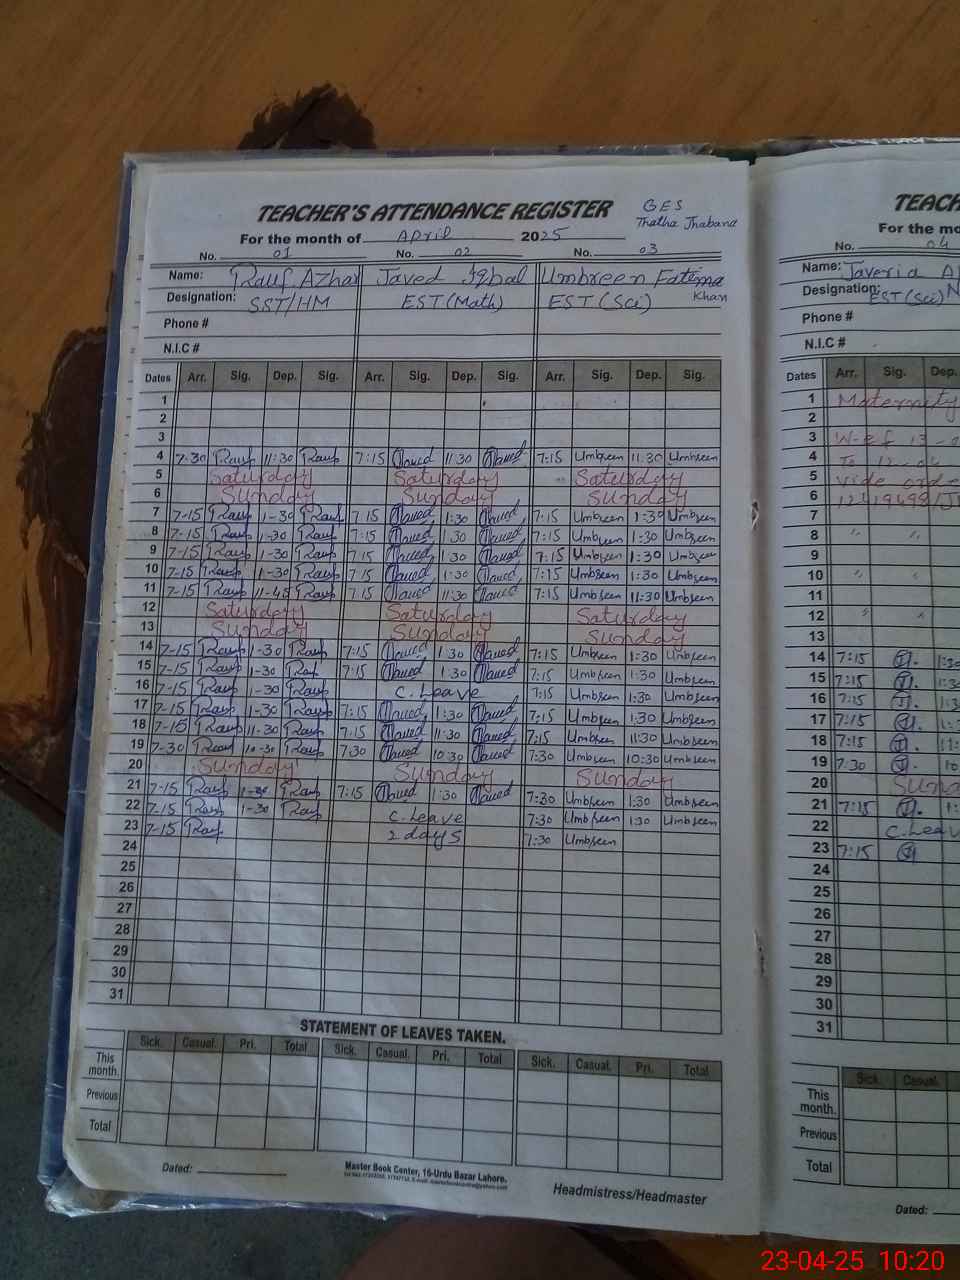 TEACHER'S ATTENDANCE REGISTER
GES
Thatha Jhabana
For the month of April 2025
No. 01 No. 02 No. 03
Name: Rauf Azhar Javed Iqbal Umbreen Fatima Khan
Designation: SST/HM EST(Math) EST(Sci)
Phone #
N.I.C #
Dates Arr. Sig. Dep. Sig. Arr. Sig. Dep. Sig. Arr. Sig. Dep. Sig.
1
2
3
4 7-30 Rauf 11:30 Rauf 7:15 Javed 11:30 Javed 7:15 Umbreen 11:30 Umbreen
5 Saturday Saturday Saturday
6 Sunday Sunday Sunday
7 7-15 Rauf 1-30 Rauf 7:15 Javed 1:30 Javed 7:15 Umbreen 1:30 Umbreen
8 7-15 Rauf 1-30 Rauf 7:15 Javed 1:30 Javed 7:15 Umbreen 1:30 Umbreen
9 7-15 Rauf 1-30 Rauf 7:15 Javed 1:30 Javed 7:15 Umbreen 1:30 Umbreen
10 7-15 Rauf 1-30 Rauf 7:15 Javed 1:30 Javed 7:15 Umbreen 1:30 Umbreen
11 7-15 Rauf 11-45 Rauf 7:15 Javed 11:30 Javed 7:15 Umbreen 11:30 Umbreen
12 Saturday Saturday Saturday
13 Sunday Sunday Sunday
14 7-15 Rauf 1-30 Rauf 7:15 Javed 1:30 Javed 7:15 Umbreen 1:30 Umbreen
15 7-15 Rauf 1-30 Rauf 7:15 Javed 1:30 Javed 7:15 Umbreen 1:30 Umbreen
16 7-15 Rauf 1-30 Rauf C. Leave 7:15 Umbreen 1:30 Umbreen
17 7-15 Rauf 1-30 Rauf 7:15 Javed 1:30 Javed 7:15 Umbreen 1:30 Umbreen
18 7-15 Rauf 11-30 Rauf 7:15 Javed 11:30 Javed 7:15 Umbreen 11:30 Umbreen
19 7-30 Rauf 10-30 Rauf 7:30 Javed 10:30 Javed 7:30 Umbreen 10:30 Umbreen
20 Sunday Sunday Sunday
21 7-15 Rauf 1-30 Rauf 7:15 Javed 1:30 Javed 7:30 Umbreen 1:30 Umbreen
22 7-15 Rauf 1-30 Rauf C. Leave 7:30 Umbreen 1:30 Umbreen
23 7-15 Rauf 2 days 7:30 Umbreen
24
25
26
27
28
29
30
31
STATEMENT OF LEAVES TAKEN.
Sick. Casual. Pri. Total Sick. Casual. Pri. Total Sick. Casual. Pri. Total
This month.
Previous
Total
Dated:
Master Book Center, 16-Urdu Bazar Lahore.
Headmistress/Headmaster
TEACH
For the mo
No. 04
Name: Javeria A
Designation: EST(Sci)
Phone #
N.I.C #
Dates Arr. Sig. Dep.
1 Maternity
2
3 W-ef 13-
4 To
5 vide orde
6
7
8 " "
9
10 " "
11
12 "
13
14 7:15 J. 1:30
15 7:15 J. 1:3
16 7:15 J. 1:3
17 7:15 J. 1:
18 7:15 J. 11:
19 7:30 J. 10
20 Sund
21 7:15 J. 1:
22 C. Leav
23 7:15 J
24
25
26
27
28
29
30
31
Sick. Casual.
This month.
Previous
Total
Dated:
23-04-25 10:20